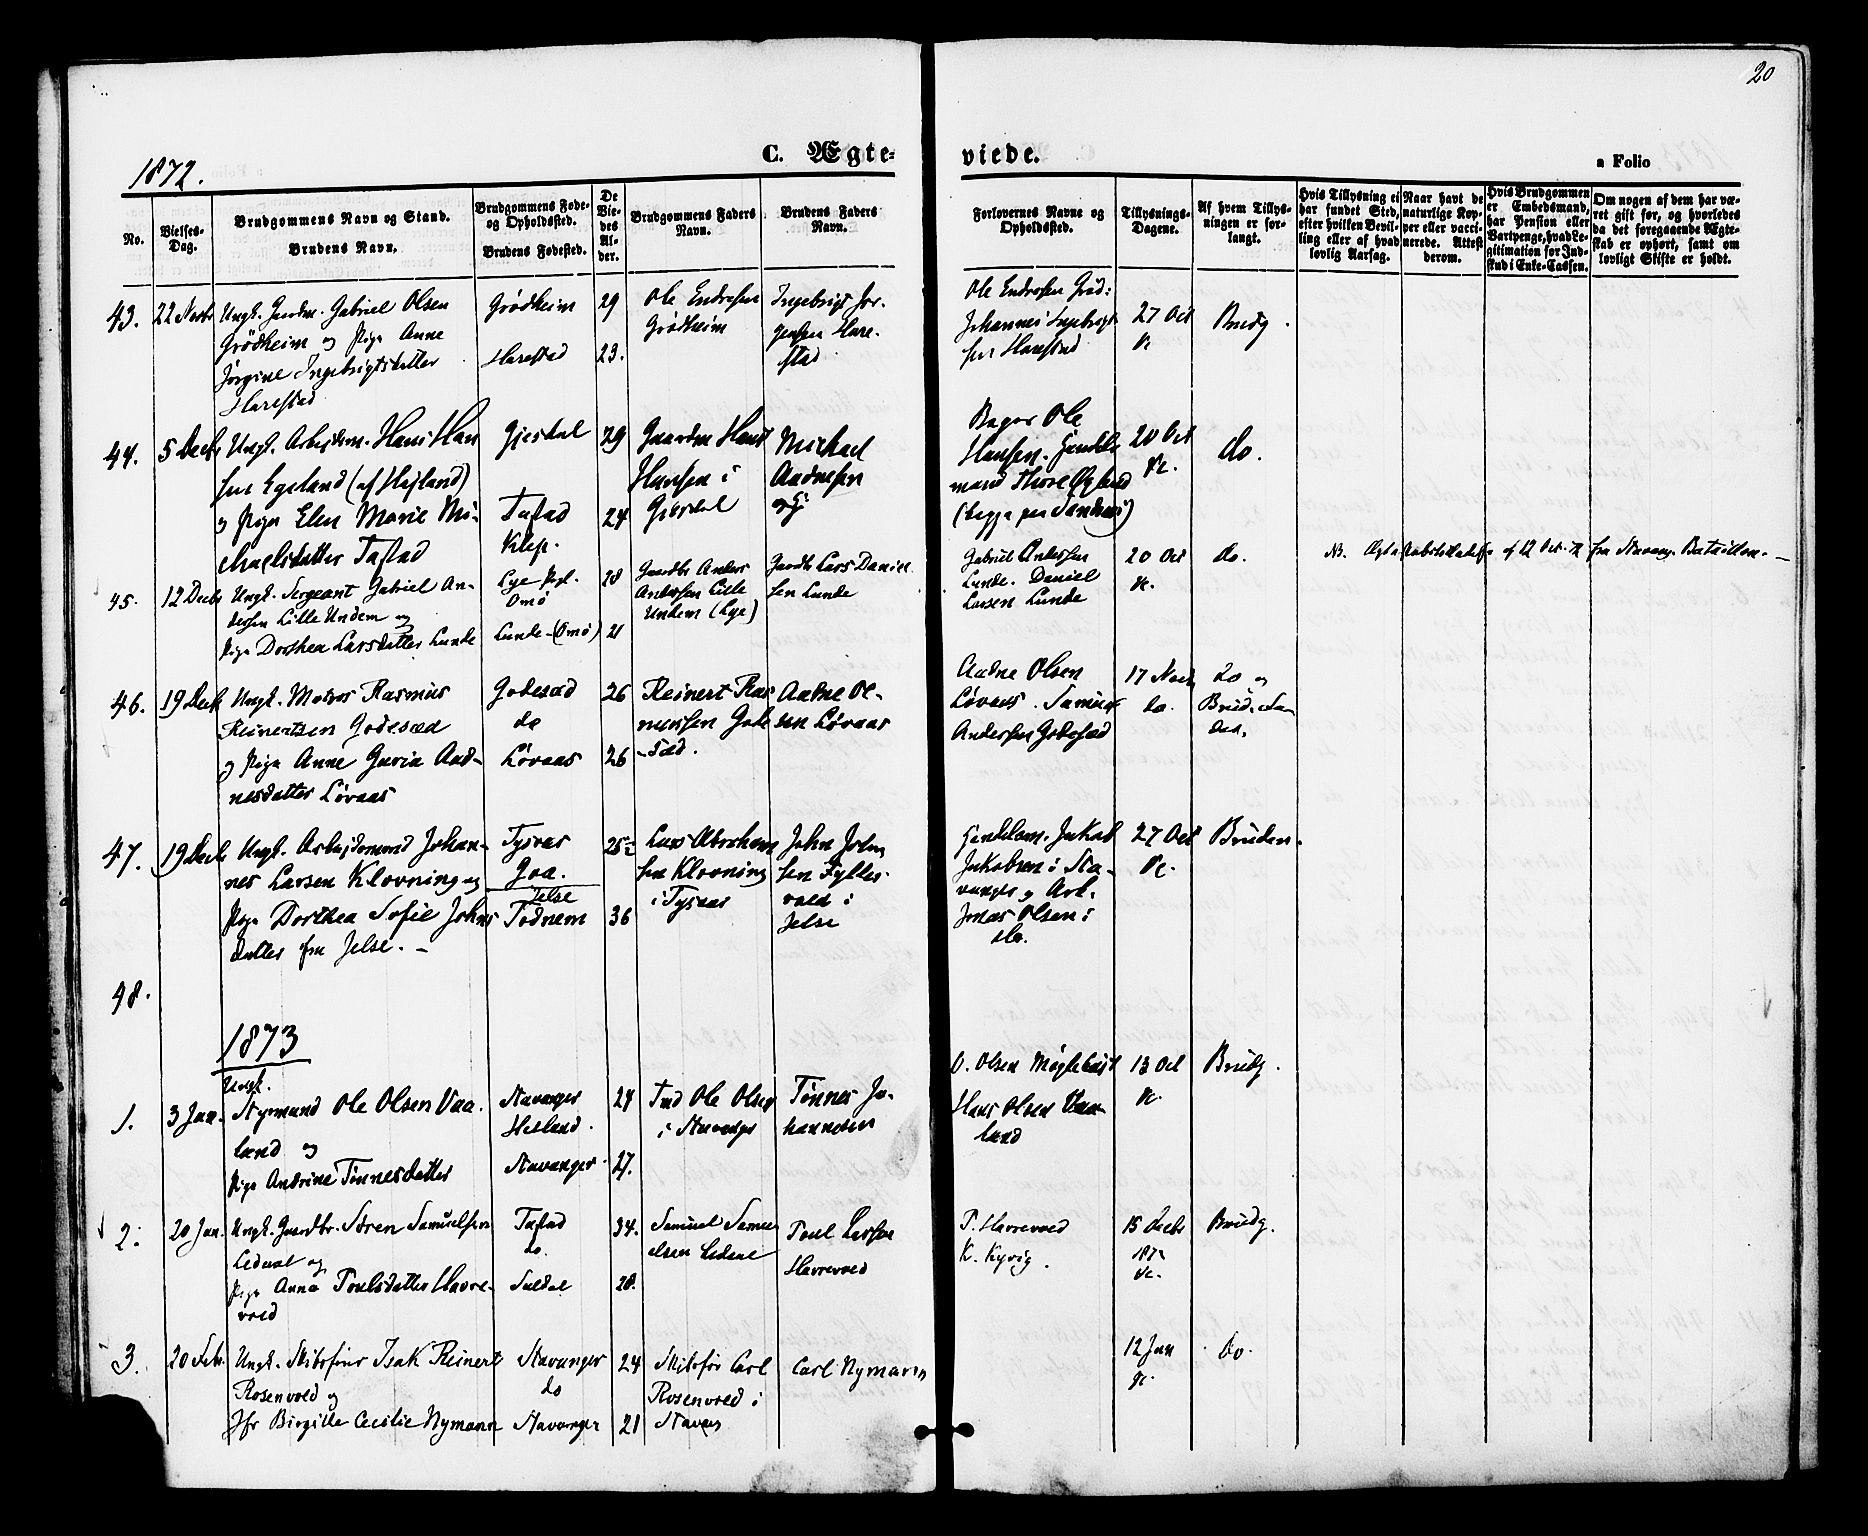 20
1872.
C. Ægte-
viede.
a Folio
No.
Vielses-
Dag.
Brudgommens Navn og Stand.
Brudens Navn.
Brudgommens Føde-
og Opholdssted.
Brudens Fødested.
De
Vie-
des
Al-
der.
Brudgommens Faders
Navn.
Brudens Faders
Navn.
Forlovernes Navne og
Opholdssted.
Tillysnings-
Dagene.
Af hvem Tillys-
ningen er for-
langt.
Hvis Tillysning ei
har fundet Sted,
efter hvilken Bevil-
ling eller af hvad
lovlig Aarsag.
Naar havt de
naturlige Kop-
per eller vacci-
nerede. Attest
derom.
Hvis Brudgommen
er Embedsmand,
har Pension eller
Vartpenge, hvad Le-
gitimation for Ind-
skud i Enke-Cassen.
Om nogen af dem har væ-
ret gift før, og hvorledes
da det foregaaende Ægte-
skab er ophørt, samt om
lovligt Skifte er holdt.
43.
22 Novbr
Ungk. Gaardm. Gabriel Olsen
Grödheim og Pige Anne
Jørgine Ingebrigtsdatter
Harestad
Grödheim
Harestad
29
23.
Ole Endresen
Grödheim
Ingebrigt Jør-
gensen Hare-
stad
Ole Endresen Gröd:
Johannes Ingebrigt
sen Harestad
27 Oct
&c
Brudg.
44.
5 Decb
Ungk. Arbejdsm. Hans Han
sen Egeland (af Hejland)
og Pige Elen Marie Mi-
chaelsdatter Tastad
Gjesdal
Tastad
Klep.
29
24
Gaardm Hans
Hansen i
Gjesdal
Michael
Aadnesen
Bager Ole
Hansen. Handels
mand Thore
(begge paa Sandnes)
20 Oct
&c.
do.
45.
12 Decbr
Ungk. Sergeant Gabriel An-
dersen Lille Undem og
Pige Dorthea Larsdatter Lunde
Lye Pgl.
Omö
Lunde (Omö)
28
21
Gaardbr Anders
Andersen Lille
Undem (Lye)
Gaardb Lars Daniel
sen Lunde
Gabriel Andersen
Lunde. Daniel
Larsen Lunde
20 Oct
&c.
do.
NB. af 12 Oct. 72 fra Stavang. Bataillon. —
46.
19 Decb
Ungk. Matros Rasmus
Reinertsen Godesæd
og Pige Anne Guria Aad-
nesdatter Lövaas
Godesæd
do
Lövaas
26
26
Reinert Ras
mussen Gode
-sæd.
Aadne Ol-
sen Lövaas
Aadne Olsen
Lövaas. Samuel
Andersen Godesæd
17 Nov
do.
do og
47.
19 Decb
Ungk. Arbejdsmand Johan-
nes Larsen Klovning og
Pige Dorthea Sofie Johns
datter fra Jelse. —
Tysvær
Goa.
Jelse
Todnem
25
36
Lars Abraham
sen Klovning
i Tysvær
John John
sen Fylles-
vold i
Jelse
Handelsm. Jakob
Jakobsen i Sta-
vanger og Arb.
Jonas Olsen i
do.
27 Oct
&c.
Bruden.
48.
1873
1.
3 Jan.
Ungk.
Styrmand Ole Olsen Vaa-
land og
Pige Andrine Tönnesdatter
Stavanger
Hetland.
Stavanger.
24
27.
Ole Olsen
i Stavanger
Tönnes Jo-
hannesen
O. Olsen Møglebust
Hans Olsen Vaa-
land
13 Oct
&c.
Brudg.
2.
20 Jan.
Ungk. Gaardbr. Sören Samuelsen
Ledaal og
Pige Anna Poulsdatter Havre-
vold
Tastad
do.
Suldal
34.
28.
Samuel Samu
elsen Ledaal
Poul Larsen
Havrevold
P. Havrevold
K. Kyvig.
15 Decbr
187
&c.
Brudg.
3.
20 Febr.
Ungk. Skibsförer Isak Reinert
Rosenvold og
Jfr Birgitte Cecilie Nymann
Stavanger
do
Stavanger
24
21
Skibsför Carl
Rosenvold i
Stavan
Carl Nymann
12 Jan
&c.
do.